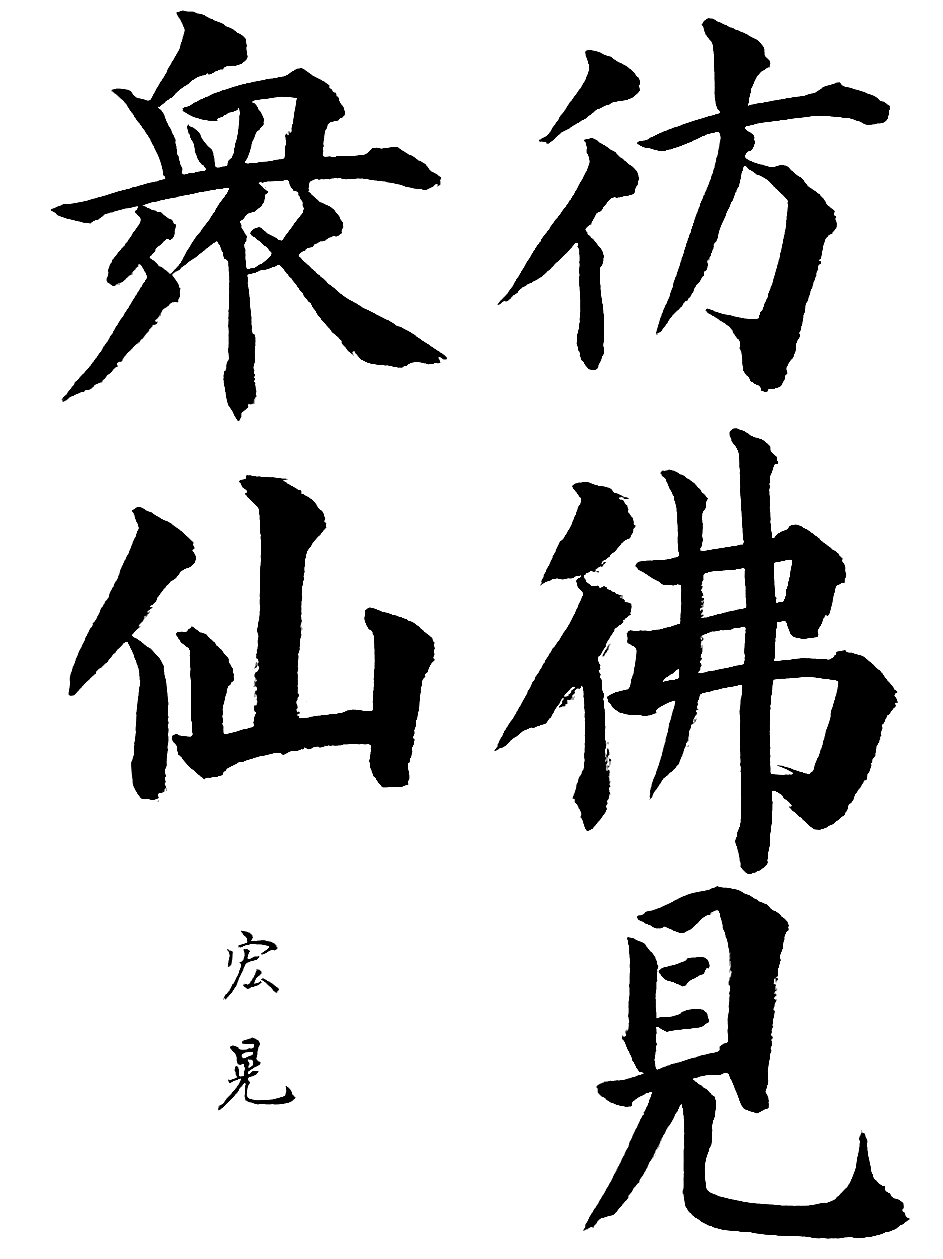 彷彿見
衆仙
宏晃